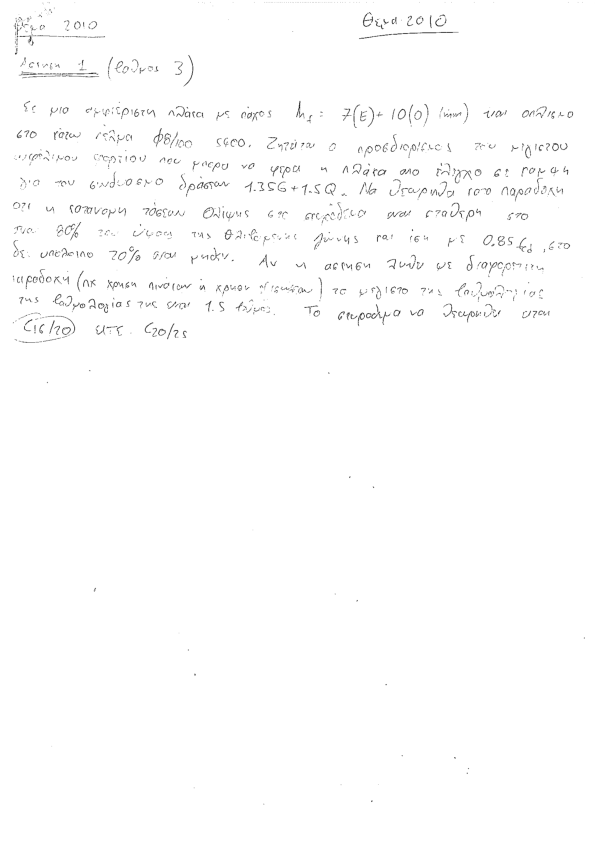 Θέμα 2010
Θεμα 2010
Άσκηση 1 (βαθμος 3)
Σε μια αμφιέριστη πλάκα με πάχος h_f = 7(E)+10(0) (mm) και οπλισμο
στο κάτω πέλμα Φ8/100 S400. Ζητάται ο προσδιορισμος του μέγιστου
ωφέλιμου φορτίου που μπορει να φερει η πλάκα απο έλεγχο σε καμψη
για τον συνδυασμο δράσεων 1.35G+1.5Q. Να θεωρηθει σαν παραδοχη
οτι η κατανομη τάσεων θλιψης στο σκυρόδεμα ειναι σταθερη στο
ενα 80% του ύψους της θλιβομενης ζώνης και ιση με 0.85 fcd, στο
δε υπολοιπο 20% ειναι μηδεν. Αν η ασκηση λυθει με διαφορετικη
παραδοχη (πχ χρηση πινάκων ή χρηση) το μεγιστο της βαθμολογίας
της βαθμολογίας της ειναι 1.5 βαθμος. Το σκυροδεμα να θεωρηθει ειναι
C16/20 C20/25